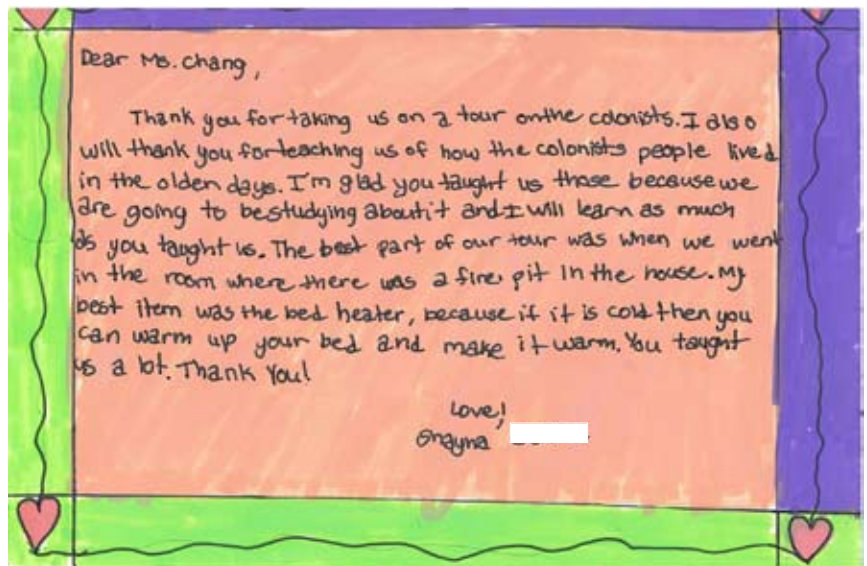 Dear Ms. Chang,
Thank you for taking us on a tour on the colonists. I also
will thank you for teaching us of how the colonists people lived
in the olden days. I'm glad you taught us those because we
are going to be studying about it and I will learn as much
as you taught us. The best part of our tour was when we went
in the room where there was a fire pit in the house. My
best item was the bed heater, because if it is cold then you
can warm up your bed and make it warm. You taught
us a lot. Thank You!
Love,